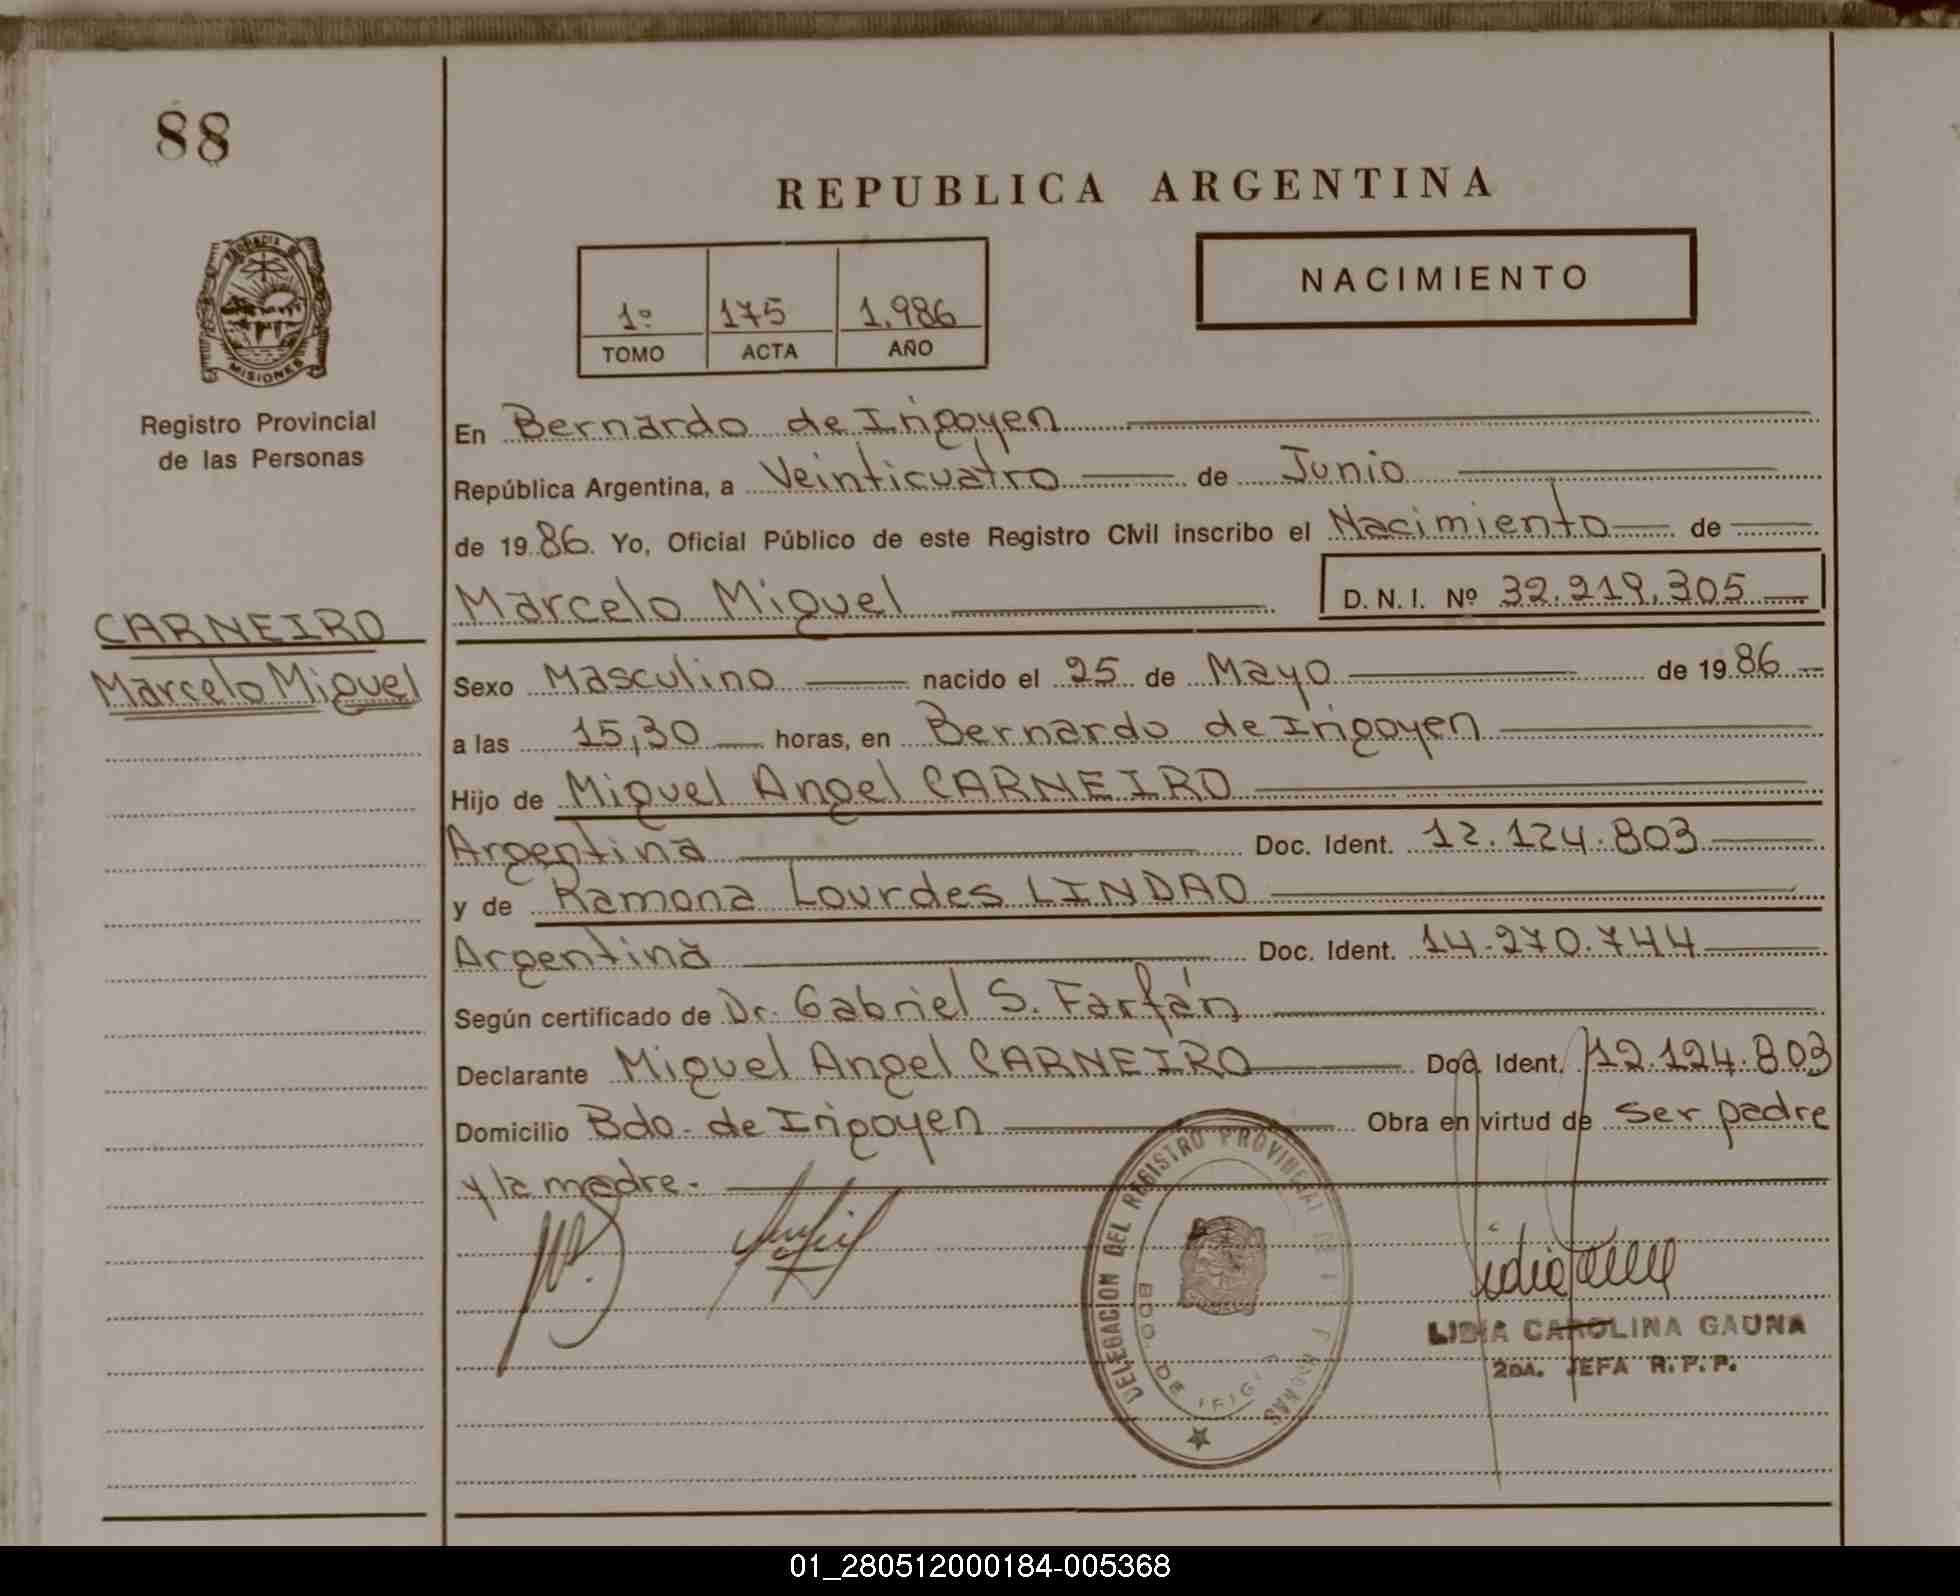 88
REPUBLICA ARGENTINA
NACIMIENTO
1º 175 1.986
TOMO ACTA AÑO
PROVINCIA DE
MISIONES
Registro Provincial
de las Personas
CARNEIRO
Marcelo Miguel
En Bernardo de Irigoyen
República Argentina, a Veinticuatro de Junio
de 1986. Yo, Oficial Público de este Registro Civil inscribo el Nacimiento de
Marcelo Miguel D.N.I. Nº 32.219.305
Sexo Masculino nacido el 25 de Mayo de 1986
a las 15,30 horas, en Bernardo de Irigoyen
Hijo de Miguel Angel CARNEIRO
Argentina Doc. Ident. 12.124.803
y de Ramona Lourdes LINDAO
Argentina Doc. Ident. 14.270.744
Según certificado de Dr. Gabriel S. Farfán
Declarante Miguel Angel CARNEIRO Doc. Ident. 12.124.803
Domicilio Bdo. de Irigoyen Obra en virtud de ser padre
y la madre.
DELEGACION DEL REGISTRO PROVINCIAL DE LAS PERSONAS
BDO. DE IRIG
LIDIA CAROLINA GAUNA
2DA. JEFA R.P.P.
01_280512000184-005368